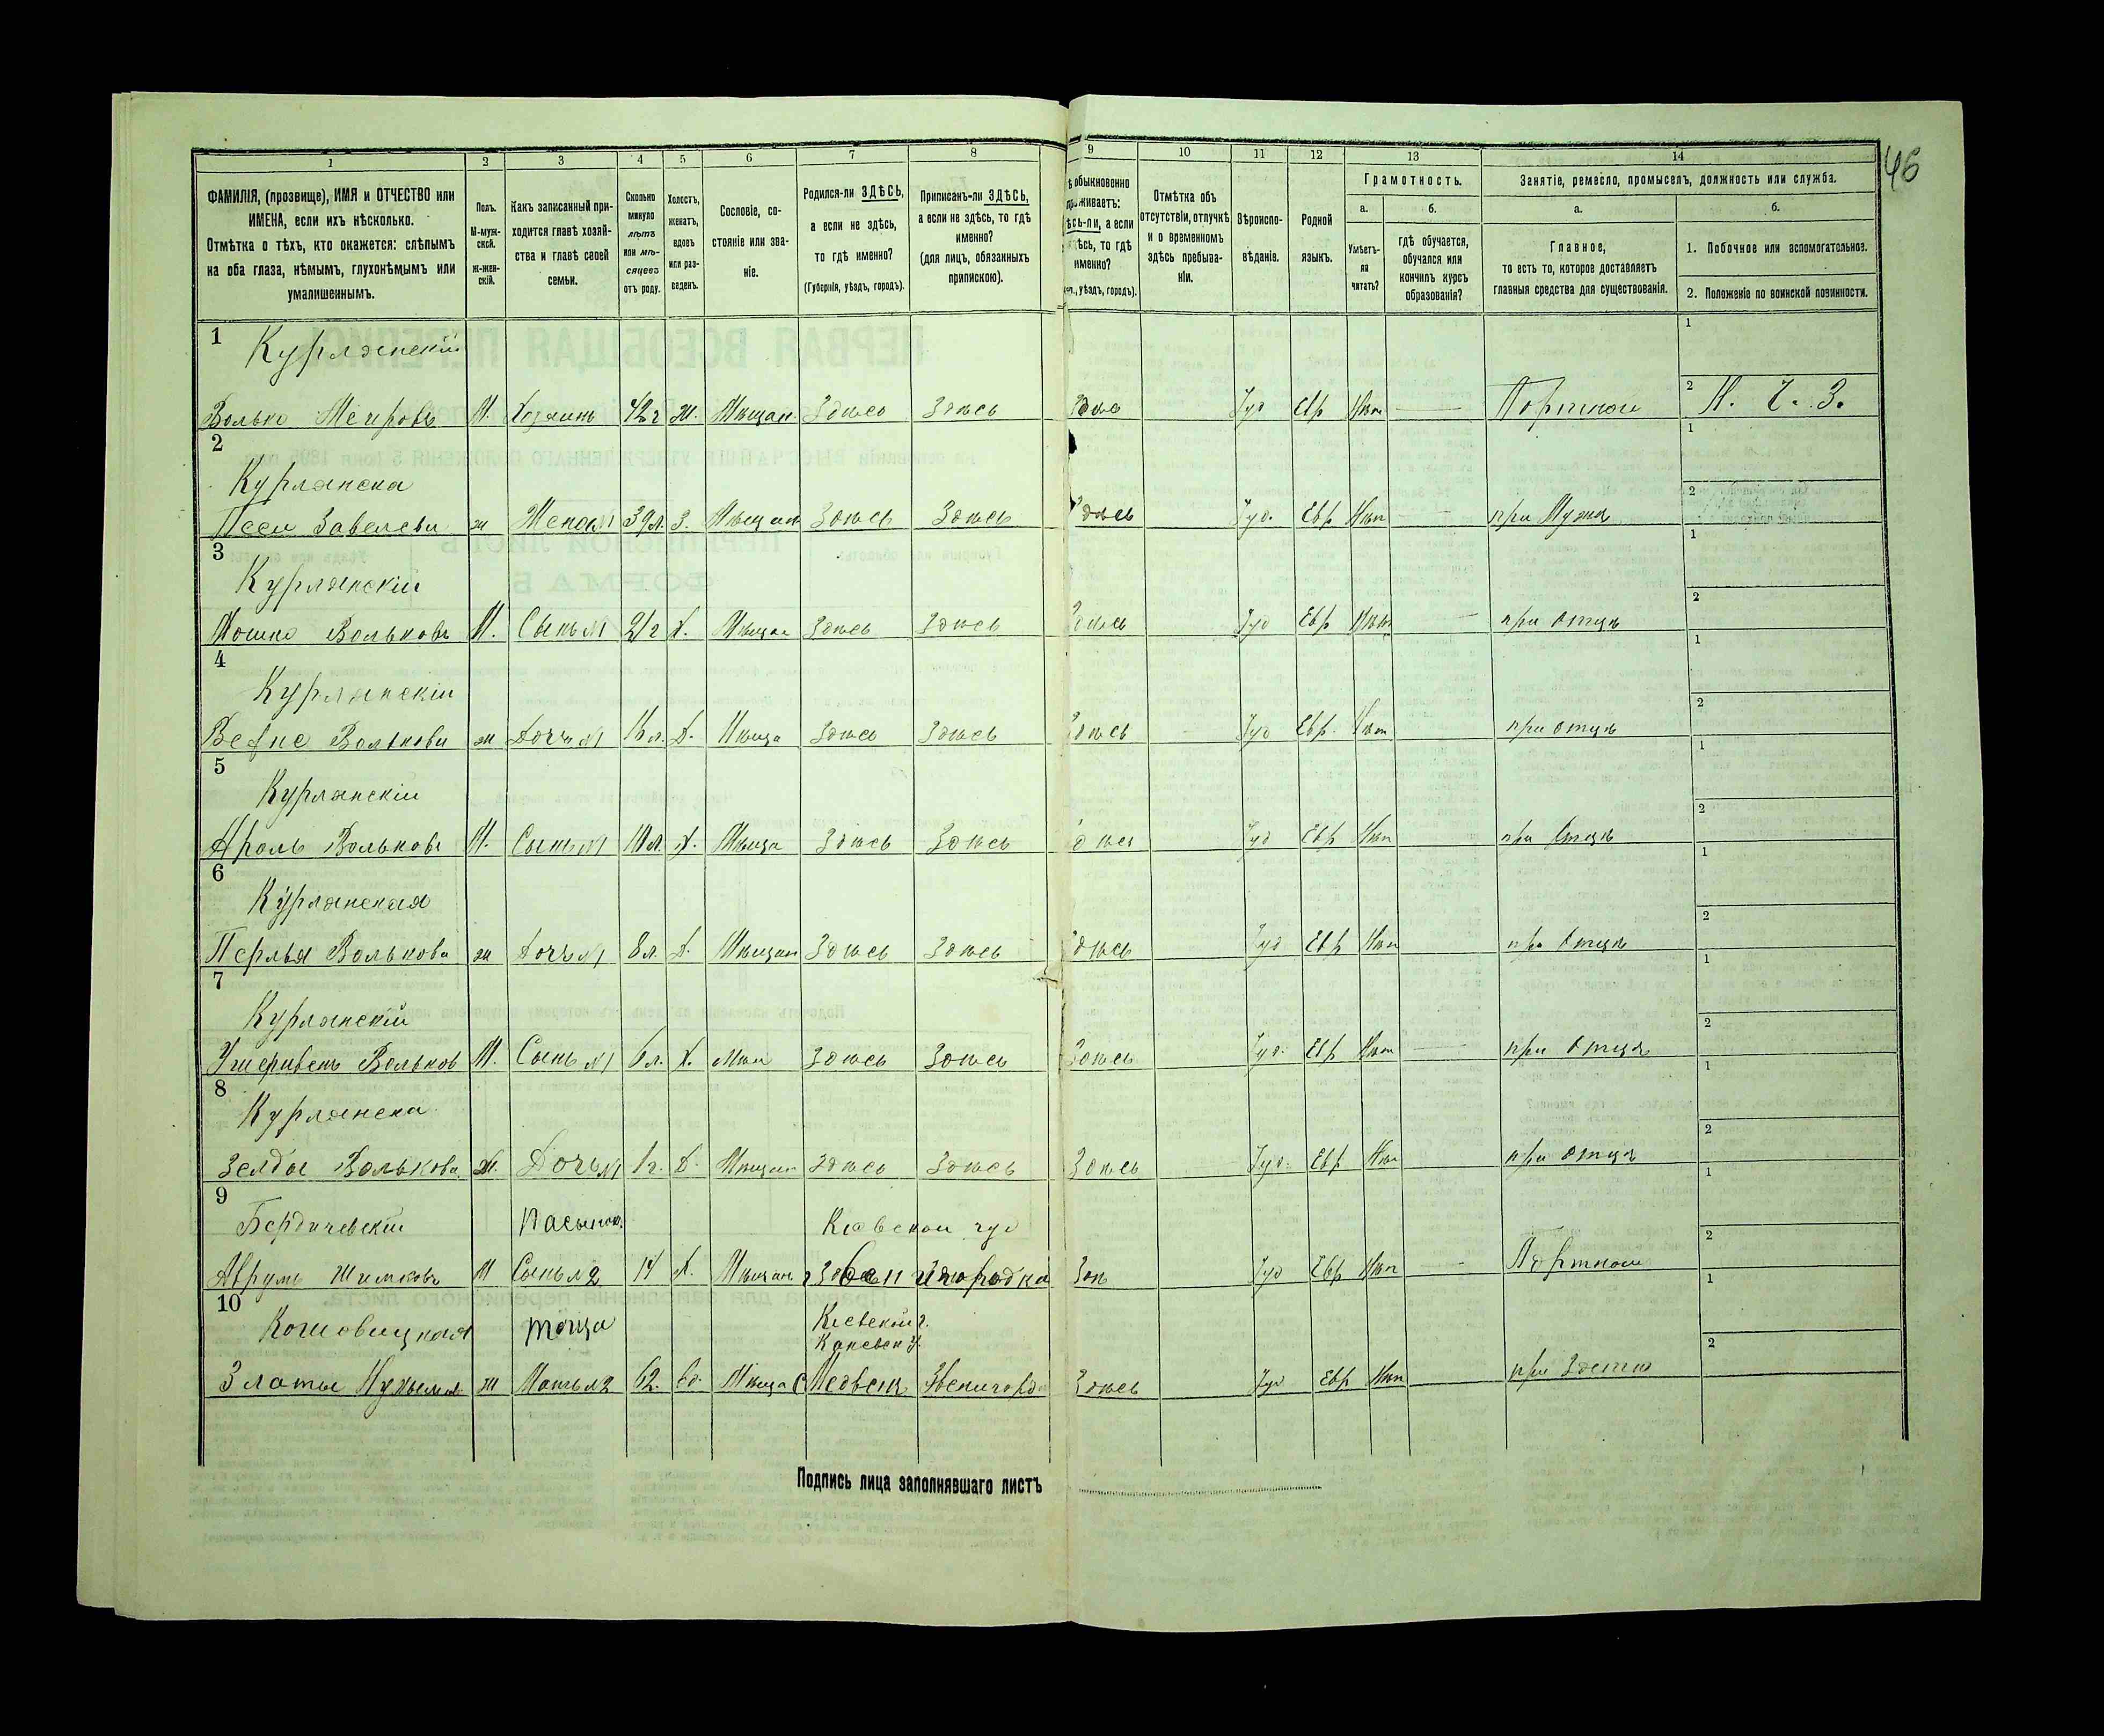 46
1 2 3 4 5 6 7 8 9 10 11 12 13 14
ФАМИЛІЯ, (прозвище), ИМЯ и ОТЧЕСТВО или
ИМЕНА, если ихъ нѣсколько.
Отмѣтка о тѣхъ, кто окажется: слѣпымъ
на оба глаза, нѣмымъ, глухонѣмымъ или
умалишеннымъ.
Полъ.
М-муж-
ской.
Ж-жен-
скій.
Какъ записанный при-
ходится главѣ хозяй-
ства и главѣ своей
семьи.
Сколько
минуло
лѣтъ
или мѣ-
сяцевъ
отъ роду.
Холостъ,
женатъ,
вдовъ
или раз-
веденъ.
Сословіе, со-
стояніе или зва-
ніе.
Родился-ли ЗДѢСЬ,
а если не здѣсь,
то гдѣ именно?
(Губернія, уѣздъ, городъ).
Приписанъ-ли ЗДѢСЬ,
а если не здѣсь, то гдѣ
именно?
(для лицъ, обязанныхъ
припискою).
обыкновенно
живаетъ:
сь-ли, а если
ѣсь, то гдѣ
именно?
уѣздъ, городъ).
Отмѣтка объ
отсутствіи, отлучкѣ
и о временномъ
здѣсь пребыва-
ніи.
Вѣроиспо-
вѣданіе.
Родной
языкъ.
Грамотность.
а.
Умѣетъ-
ли
читать?
б.
гдѣ обучается,
обучался или
кончилъ курсъ
образованія?
Занятіе, ремесло, промыселъ, должность или служба.
а.
Главное,
то есть то, которое доставляетъ
главныя средства для существованія.
б.
1. Побочное или вспомогательное.
2. Положеніе по воинской повинности.
1 Курлянскій 1
Волько Меировъ М. Хозяинъ 42 г ж. Мѣщан. Здѣсь Здѣсь Здѣсь Іуд Евр Нѣт Портной 2 Н. Ч. З.
2 Курлянска 1
Песи ж Жена М1 39 л. З. Мѣщан Здѣсь Здѣсь Здѣсь Іуд. Евр Нѣт при Мужѣ 2
3 Курлянскій 1
Мошко Вольковъ М. Сынъ М1 21 г Х. Мѣщан Здѣсь Здѣсь Здѣсь Іуд Евр Нѣт при Отцѣ 2
4 Курлянскій 1
Вольковы ж Дочь М1 л. Д. Мѣща Здѣсь Здѣсь Здѣсь Іуд Евр. Нѣт при отцѣ 2
5 Курлянскій 1
Вольковъ М. Сынъ М1 10 л. Х. Мѣща Здѣсь Здѣсь дѣсь Іуд Евр Нѣт при Отцѣ 2
6 Курлянская 1
Перлья Волькова ж Дочь М1 8 л. Д. Мѣщан Здѣсь Здѣсь Здѣсь Іуд Евр Нѣт при Отцѣ 2
7 Курлянскій 1
Вольков М. Сынъ М1 6 л. Х. Мѣщ Здѣсь Здѣсь Здѣсь Іуд. Евр Нѣт при Отцѣ 2
8 Курлянска 1
Зелды Волькова Ж. Дочь М1 1 г. Д. Мѣщан Здѣсь Здѣсь Здѣсь Іуд. Евр Нѣт при Отцѣ 2
9 Бердичевскій Пасынок. Кіевской гу 1
Аврумъ Шимковъ М Сынъ М2 14 Х. Мѣщан Іуд Евр Нѣт Портной 2
10 Теща Кіевской г. 1
Каневск у.
Златы ж Мать М2 62. вд. Мѣща Звенигород Здѣсь Іуд Евр Нѣт при Зятѣ 2
Подпись лица заполнявшаго листъ